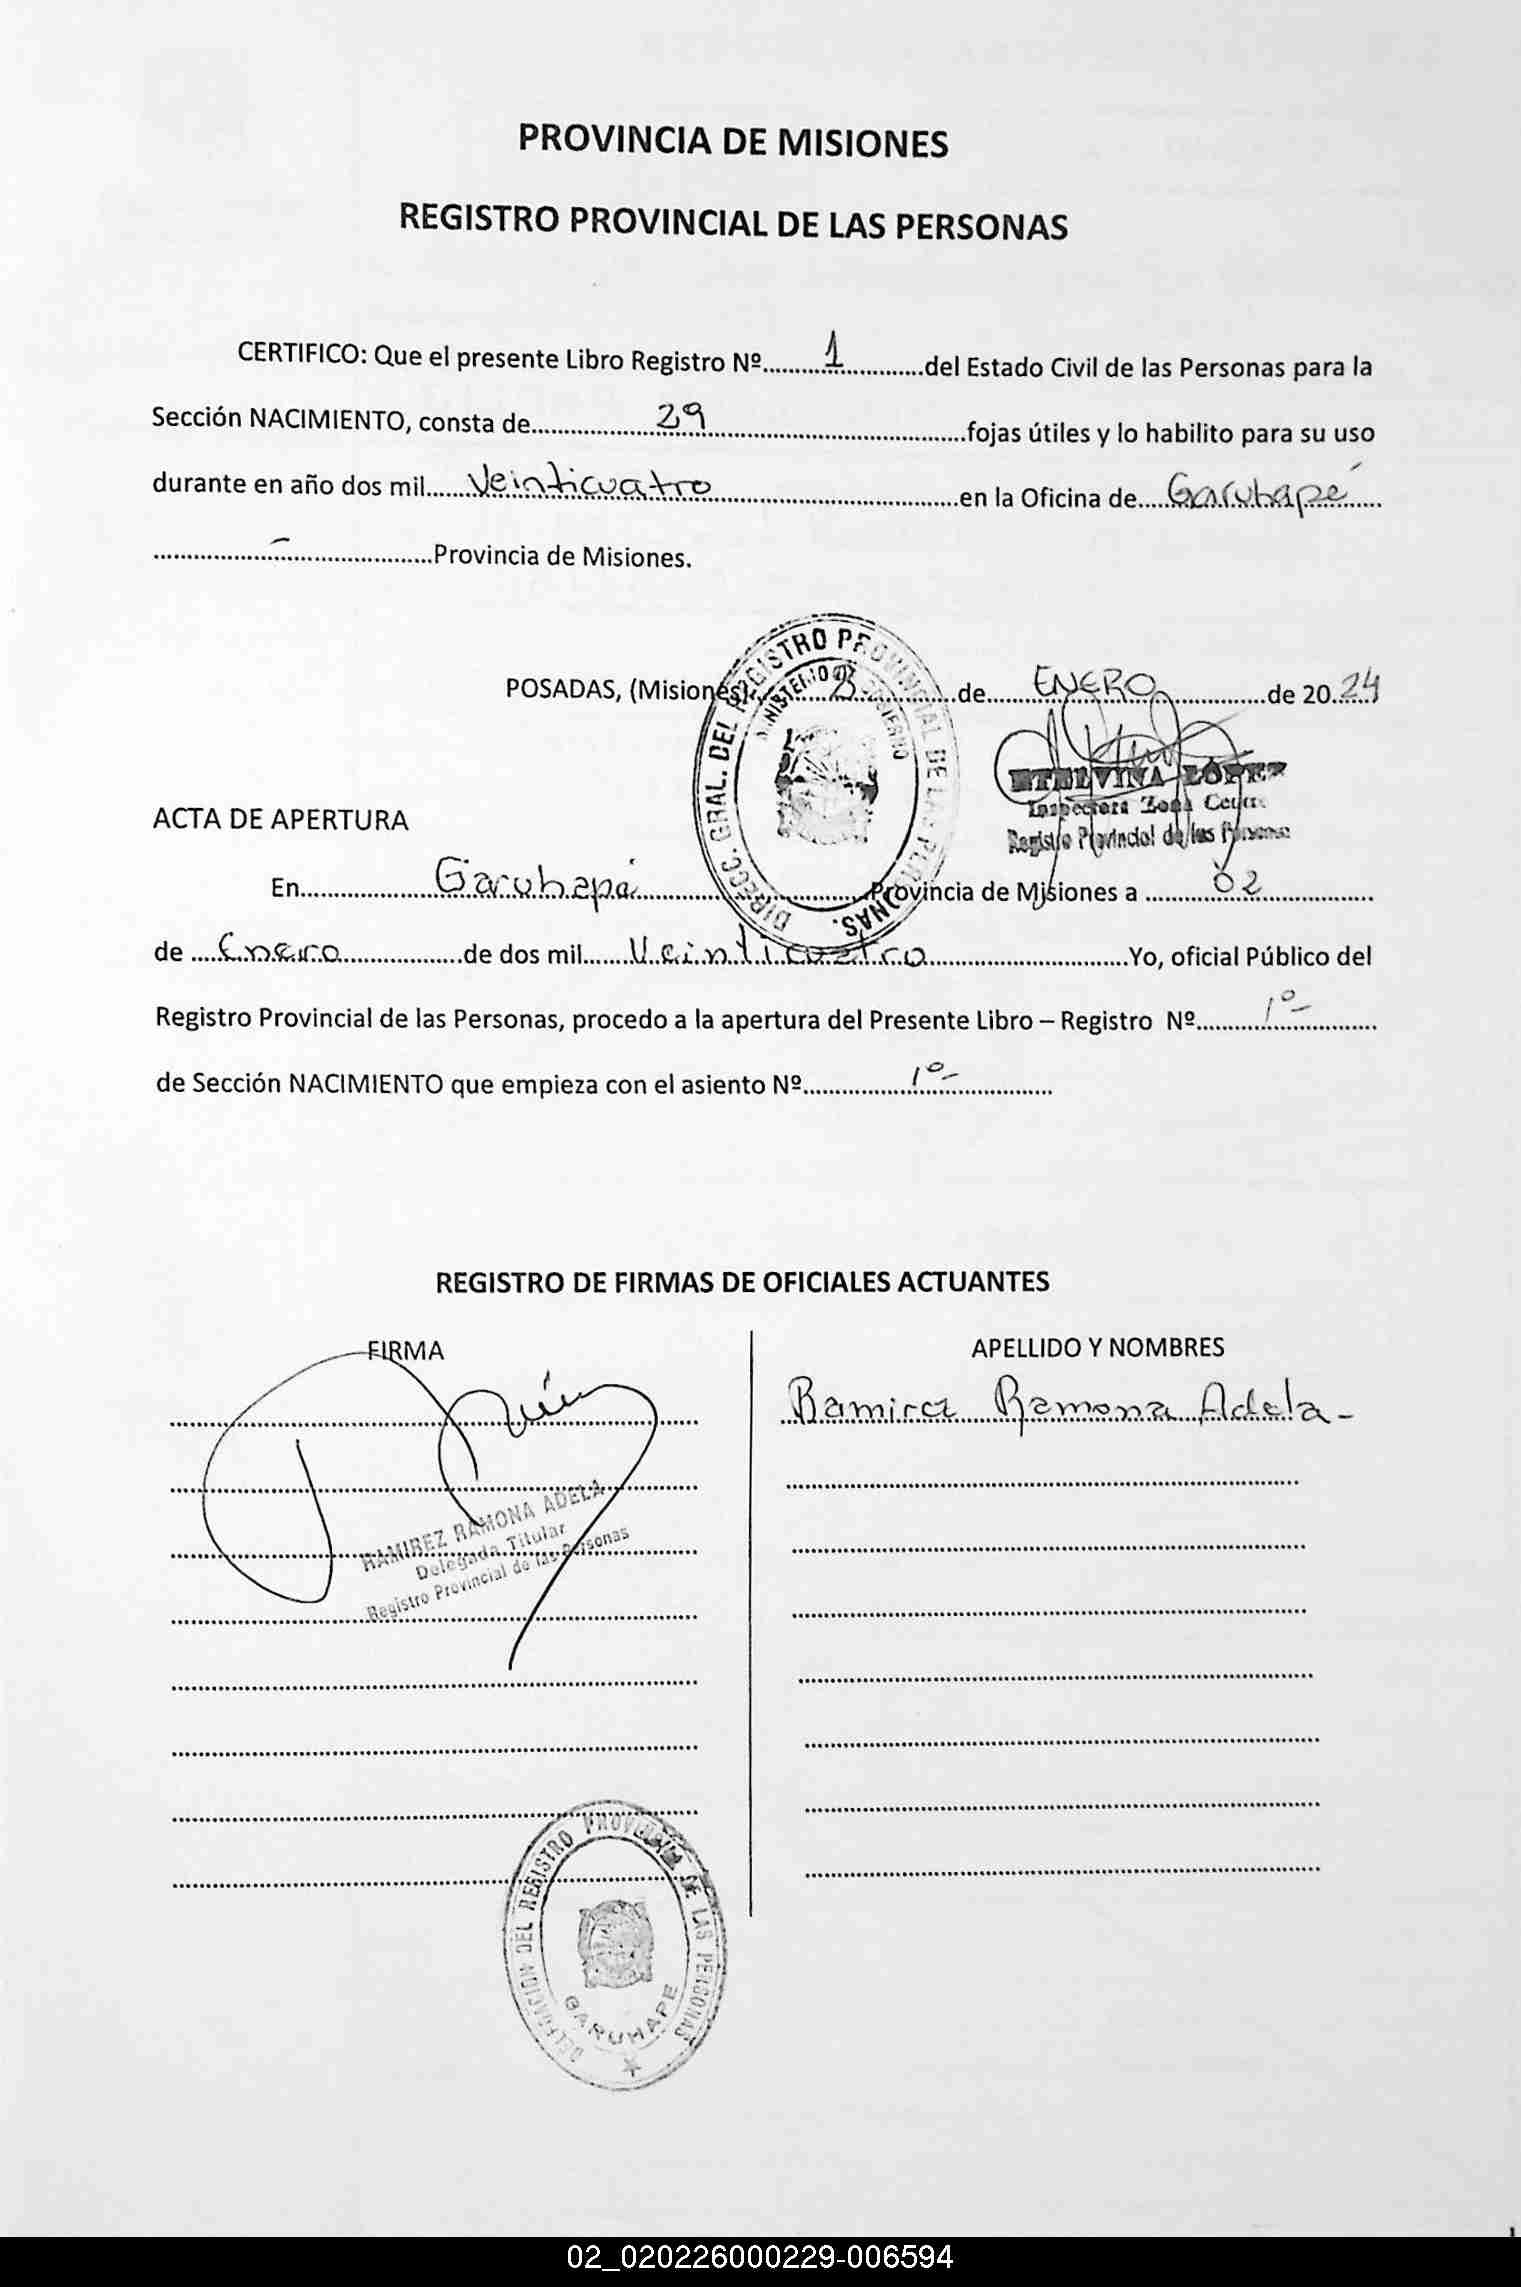 PROVINCIA DE MISIONES
REGISTRO PROVINCIAL DE LAS PERSONAS
CERTIFICO: Que el presente Libro Registro Nº..........1..........del Estado Civil de las Personas para la
Sección NACIMIENTO, consta de..........29..........fojas útiles y lo habilito para su uso
durante en año dos mil......Veinticuatro..........en la Oficina de.....Garuhapé.....
..........-..........Provincia de Misiones.
POSADAS, (Misiones)....................de.....ENERO..........de 20..24
ETELVINA LÓPEZ
Inspectora Zona Centro
Registro Provincial de las Personas
DIRECC. GRAL. DEL REGISTRO PROVINCIAL DE LAS PERSONAS.
MINISTERIO DE GOBIERNO
ACTA DE APERTURA
En..........Garuhapé..........Provincia de Misiones a .....02.....
de ....Enero..........de dos mil......Veinticuatro..........Yo, oficial Público del
Registro Provincial de las Personas, procedo a la apertura del Presente Libro – Registro Nº.....1º-.....
de Sección NACIMIENTO que empieza con el asiento Nº..........1º-..........
REGISTRO DE FIRMAS DE OFICIALES ACTUANTES
FIRMA
APELLIDO Y NOMBRES
Ramirez Ramona Adela-
RAMIREZ RAMONA ADELA
Delegada Titular
Registro Provincial de las Personas
DELEGACION DEL REGISTRO PROVINCIAL DE LAS PERSONAS
GARUHAPE
02_020226000229-006594